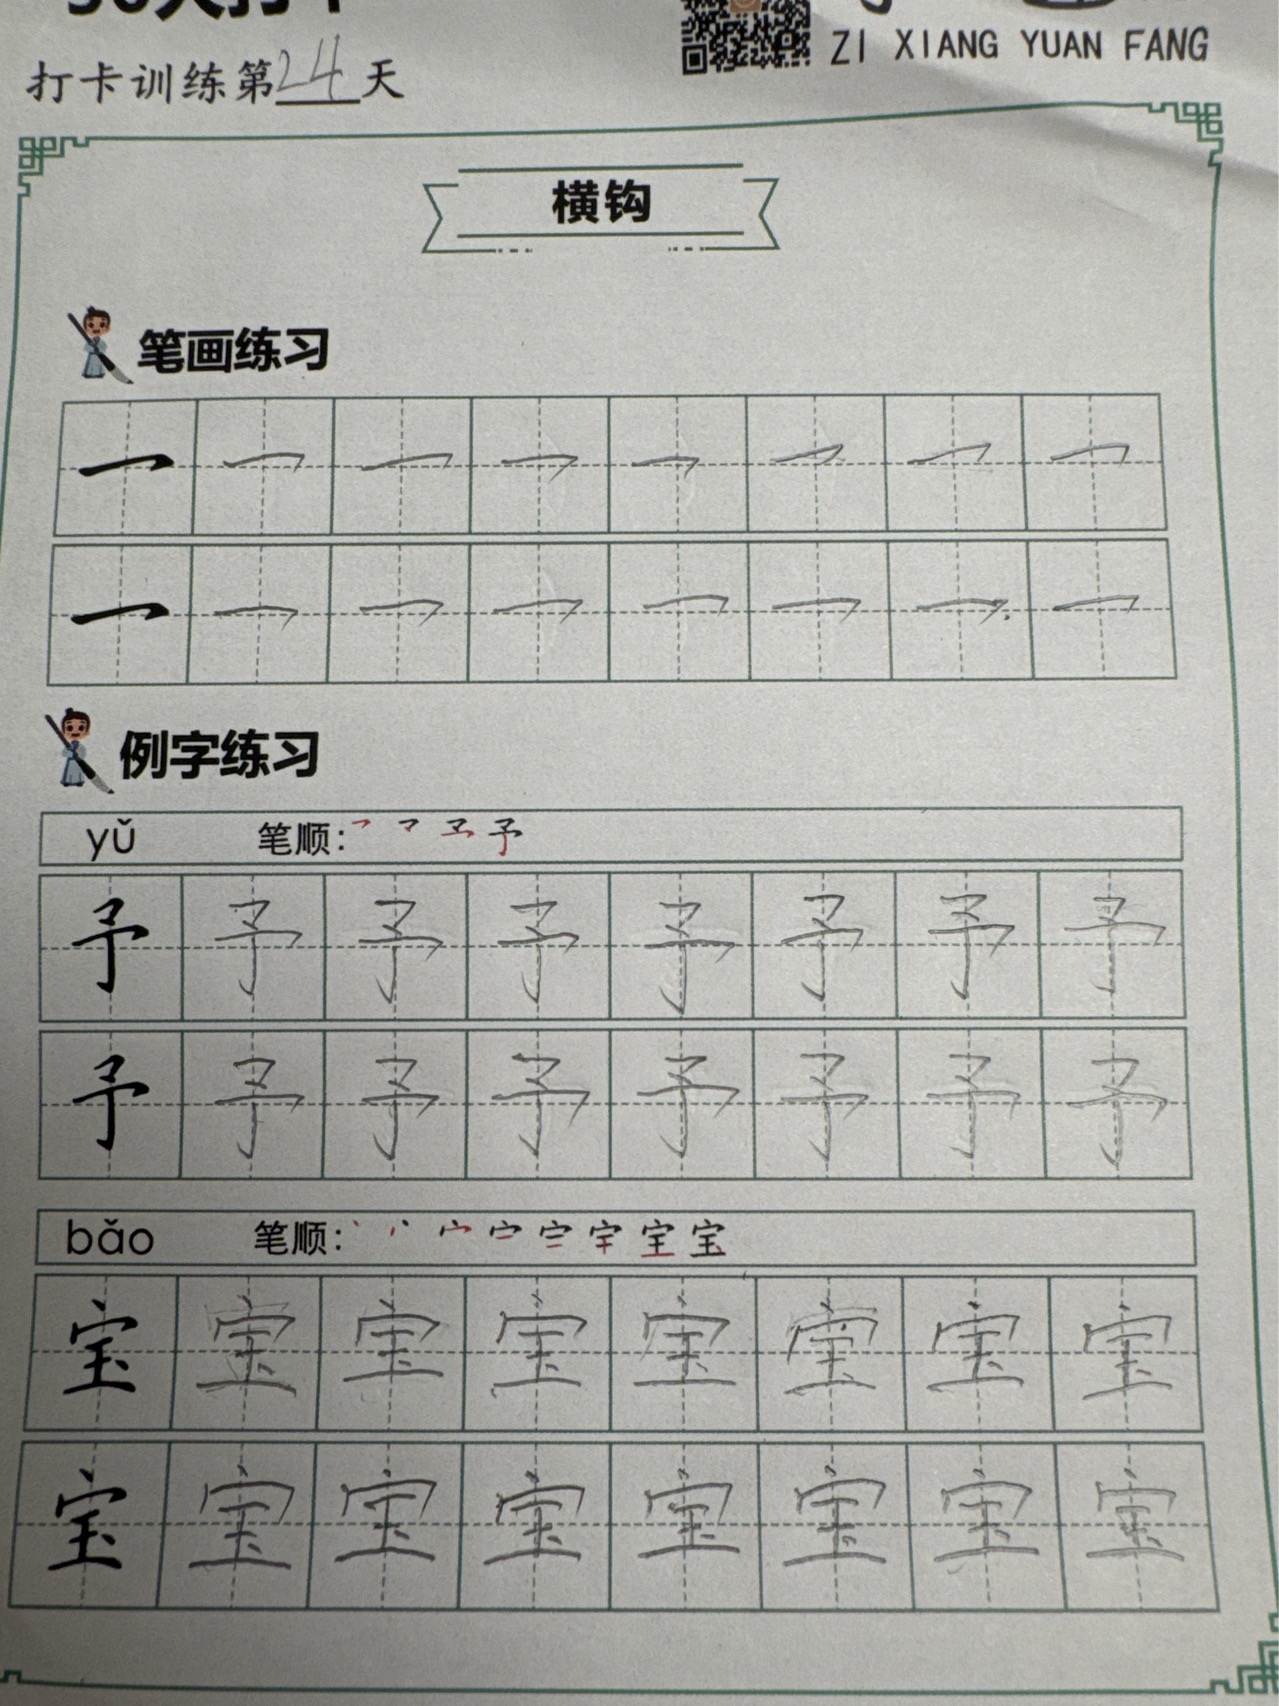 ZI XIANG YUAN FANG
打卡训练第24天
横钩
笔画练习
例字练习
yǔ 笔顺：
予 予 予 予 予 予 予 予
予 予 予 予 予 予 予 予
bǎo 笔顺：
宝 宝 宝 宝 宝 宝 宝 宝
宝 宝 宝 宝 宝 宝 宝 宝